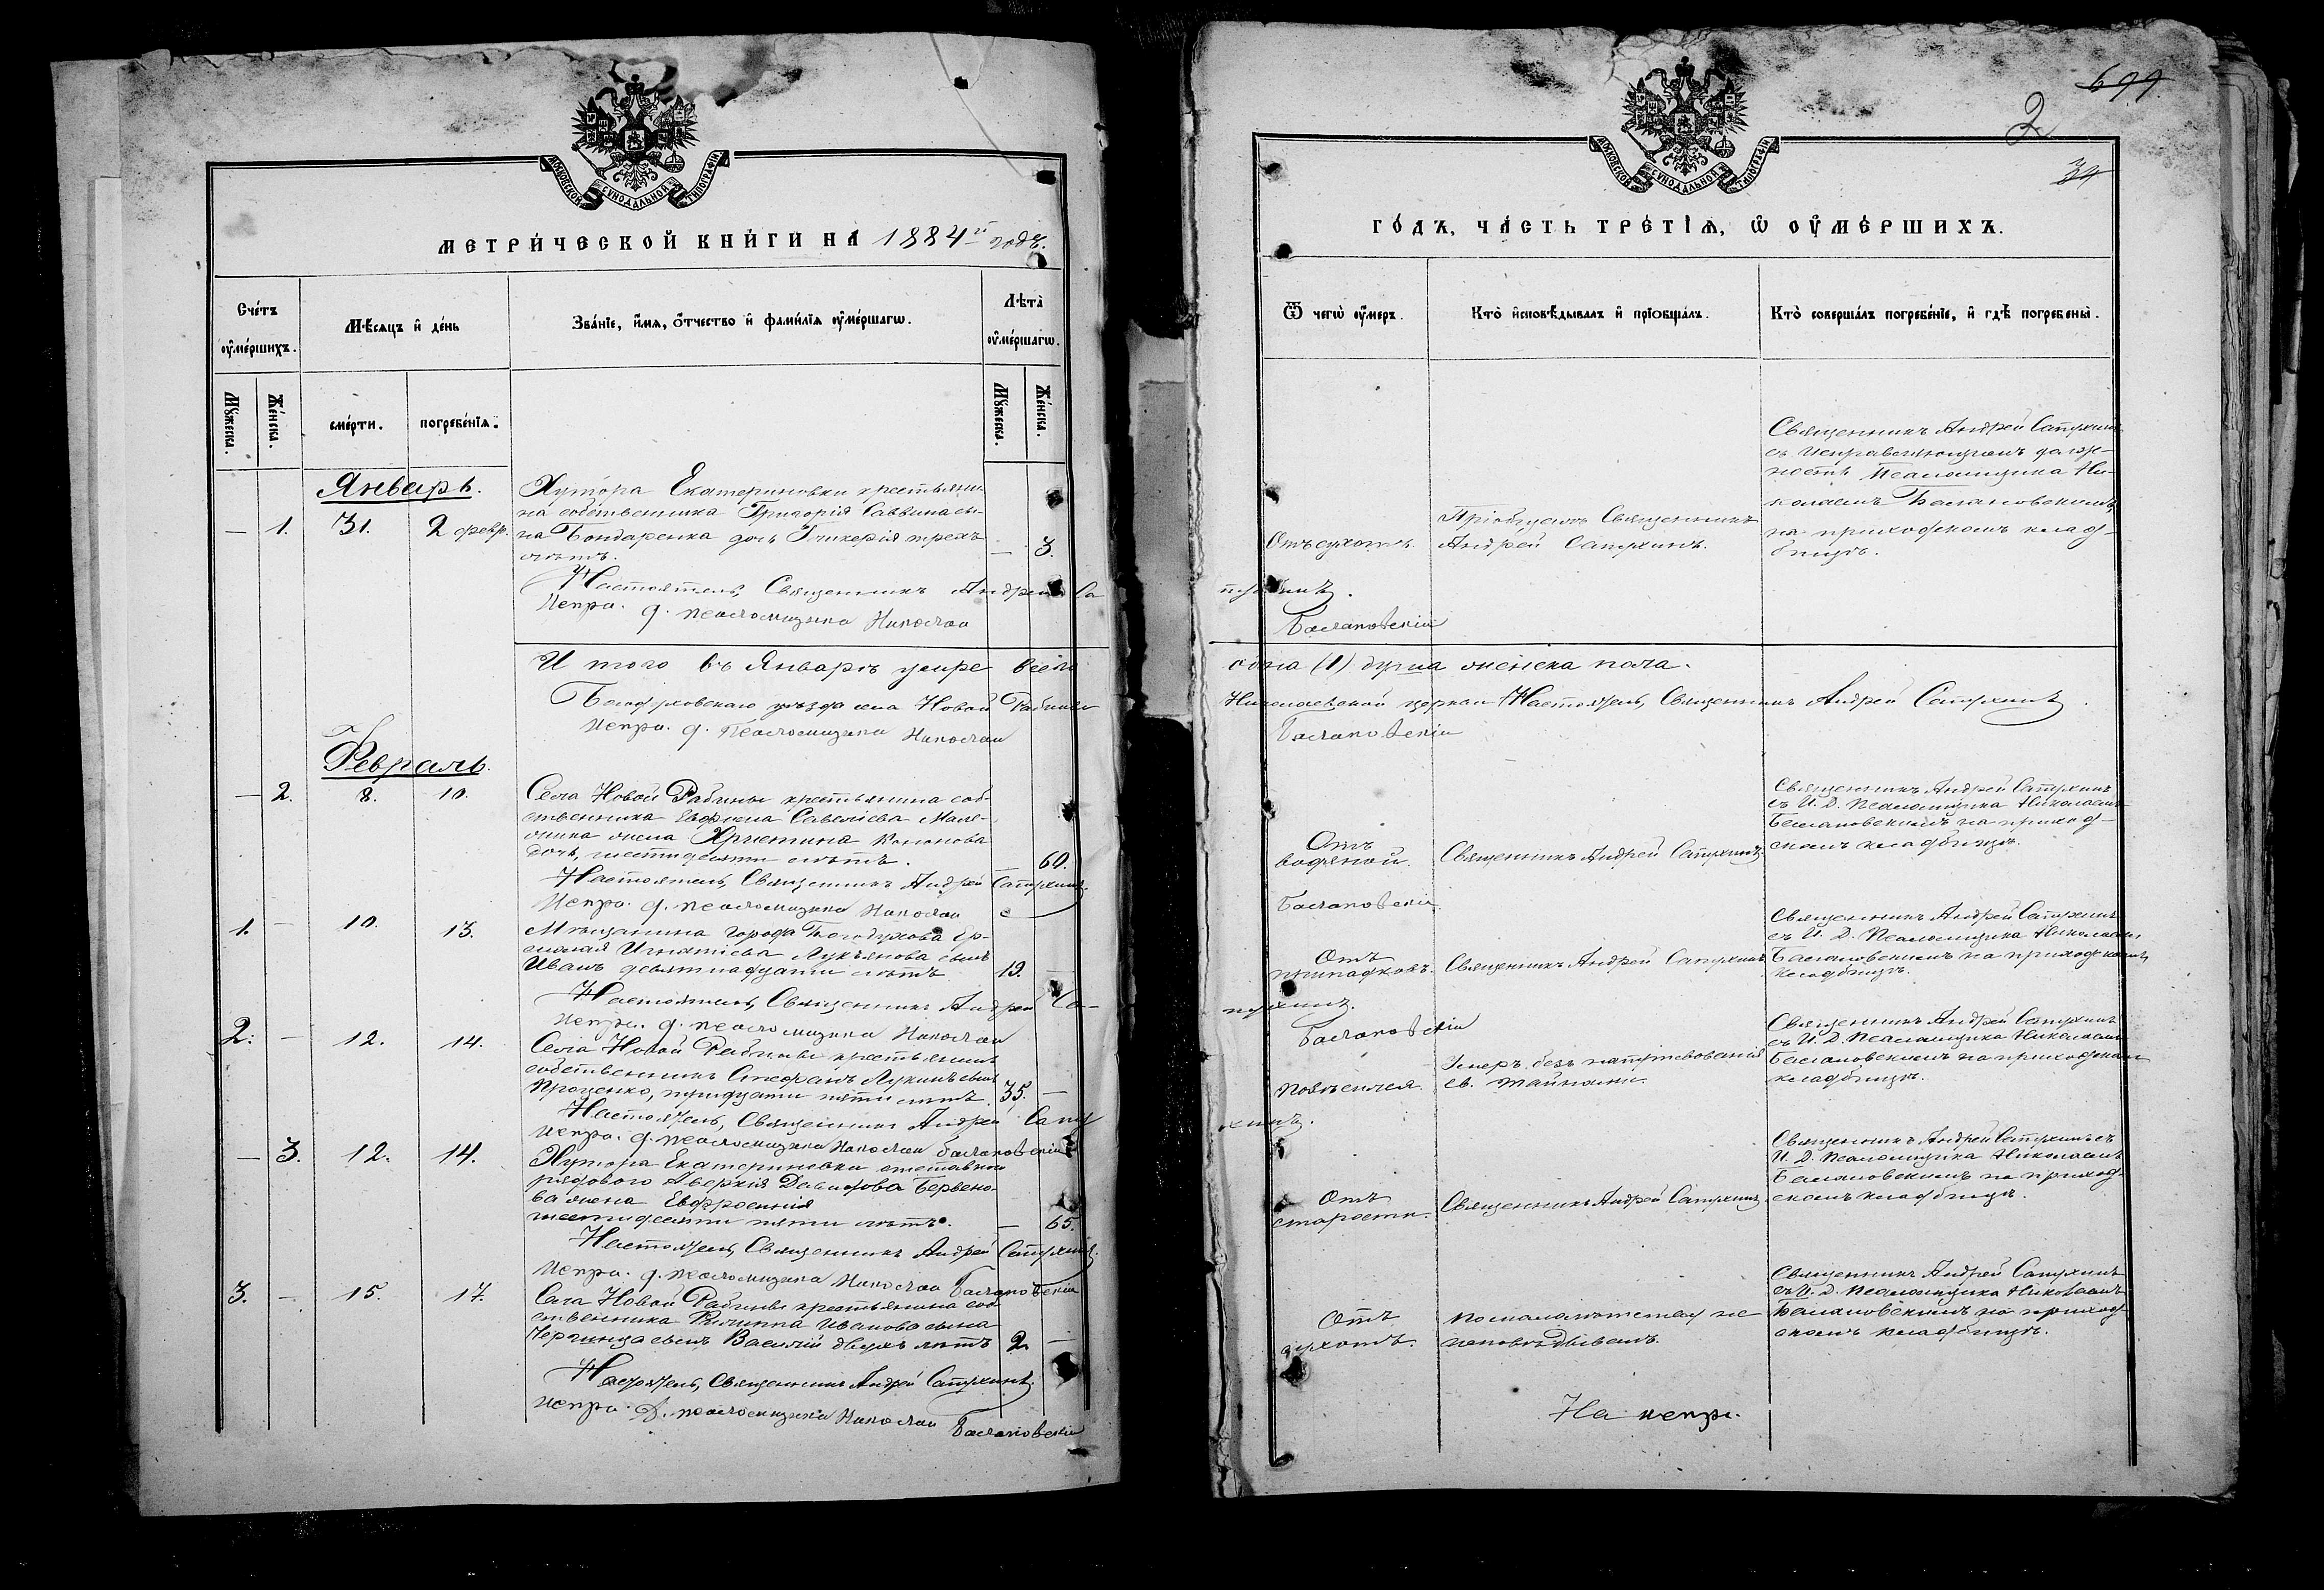 МОСКОВСКОЙ СѴНОДАЛЬНОЙ ТИПОГРАФІИ
МЕТРИ́ЧЕСКОЙ КНИ́ГИ НА̀ 1884й годъ.
Счéтъ ᲂу҆мéршихъ.
Мѣ́сяцъ и҆ дéнь
Звáнїе, и҆́мя, ѻ҆́тчество и҆ фами́лїя ᲂу҆мéршагѡ.
Лѣ́та ᲂу҆мéршагѡ.
Мꙋ́жеска.
Жéнска.
смéрти.
погребéнїя.
Мꙋ́жеска.
Жéнска.
Январь.
— 1. 31. 2 февр.
Хутора Екатериновки крестьяни-
на собственника Григорія Саввина сы-
на Бондаренка дочь Гликерія трехъ
лѣтъ.
— 3.
Настоятель, Священникъ Андрей Са
Испр. д. псаломщика Николай
И того въ Январѣ умре всего
Богодуховскаго уѣзда села Новой Рябины
Испр. д. Псаломщика Николай
Февраль.
— 2. 8. 10.
Села Новой Рябины крестьянина соб-
ственника Савелієва
жена Христина Кононова
дочь, шестидесяти лѣтъ.
— 60.
Настоятель, Священникъ Андрей Сапухинъ.
Испр. д. псаломщика Николай
1. — 10. 13.
Мѣщанина города Богодухова
Игнатіева Лукьянова сынъ
Иванъ девятнадцати лѣтъ
19. —
Настоятель, Священникъ Андрей Са-
Испр. д. псаломщика Николай
2. — 12. 14.
Села Новой Рябины крестьянинъ
собственникъ Стефанъ Лукинъ сынъ
Проценко, тридцати пяти лѣтъ.
35. —
Настоятель, Священникъ Андрей Сапу
Испр. д. псаломщика Николай Балановскій
— 3. 12. 14.
Хутора Екатериновки отставнаго
рядового Аверкія Давидова
жена Евфросинія
шестидесяти пяти лѣтъ.
— 65.
Настоятель, Священникъ Андрей Сапухинъ.
Испр. д. псаломщика Николай Балановскій
3. — 15. 17.
Села Новой Рябины крестьянина соб
ственника Филиппа Иванова сына
сынъ Василій двухъ лѣтъ
2 —
Настоятель, Священникъ Андрей Сапухинъ.
Испр. Д. псаломщика Николай Балановскій
699
2
34
МОСКОВСКОЙ СѴНОДАЛЬНОЙ ТИПОГРАФІИ
ГО́ДЪ, ЧА́СТЬ ТРЕ́ТЇѦ, Ѡ҆ ОУ҆МЕ́РШИХЪ.
Ѿ чегѡ̀ ᲂу҆́меръ.
Ктò и҆сповѣ́дывалъ и҆ прїѡбщáлъ.
Ктò совершáлъ погребéнїе, и҆ гдѣ̀ погребены̀.
Отъ сухотъ.
Пріобщалъ Священникъ
Андрей Сапухинъ.
Священникъ Андрей Сапухинъ
съ исправляющимъ долж-
ность Псаломщика Ни-
колаемъ Балановскимъ,
на приходскомъ клад-
бищѣ.
пухинъ.
Балановскій
одна (1) душа женска пола.
Николаевской церкви Настоятель, Священникъ Андрей Сапухинъ.
Балановскій
Отъ
водяной.
Священникъ Андрей Сапухинъ.
Священникъ Андрей Сапухинъ
съ И. Д. Псаломщика Николаемъ
Балановскимъ на приход-
скомъ кладбищѣ.
Балановскій
Отъ
припадковъ.
Священникъ Андрей Сапухинъ.
Священникъ Андрей Сапухинъ
съ И. Д. Псаломщика Николаемъ
Балановскимъ на приходскомъ
кладбищѣ.
пухинъ.
Балановскій
Повѣсился.
Умеръ безъ напутствованія
св. тайнами.
Священникъ Андрей Сапухинъ
съ И. Д. Псаломщика Николаемъ
Балановскимъ на приходскомъ
кладбищѣ.
хинъ.
Отъ
старости.
Священникъ Андрей Сапухинъ.
Священникъ Андрей Сапухинъ съ
И. Д. Псаломщика Николаемъ
Балановскимъ на приход-
скомъ кладбищѣ.
Отъ
сухотъ.
По малолѣтству не
исповѣдыванъ.
Священникъ Андрей Сапухинъ
съ И. Д. Псаломщика Николаемъ
Балановскимъ на приход-
скомъ кладбищѣ.